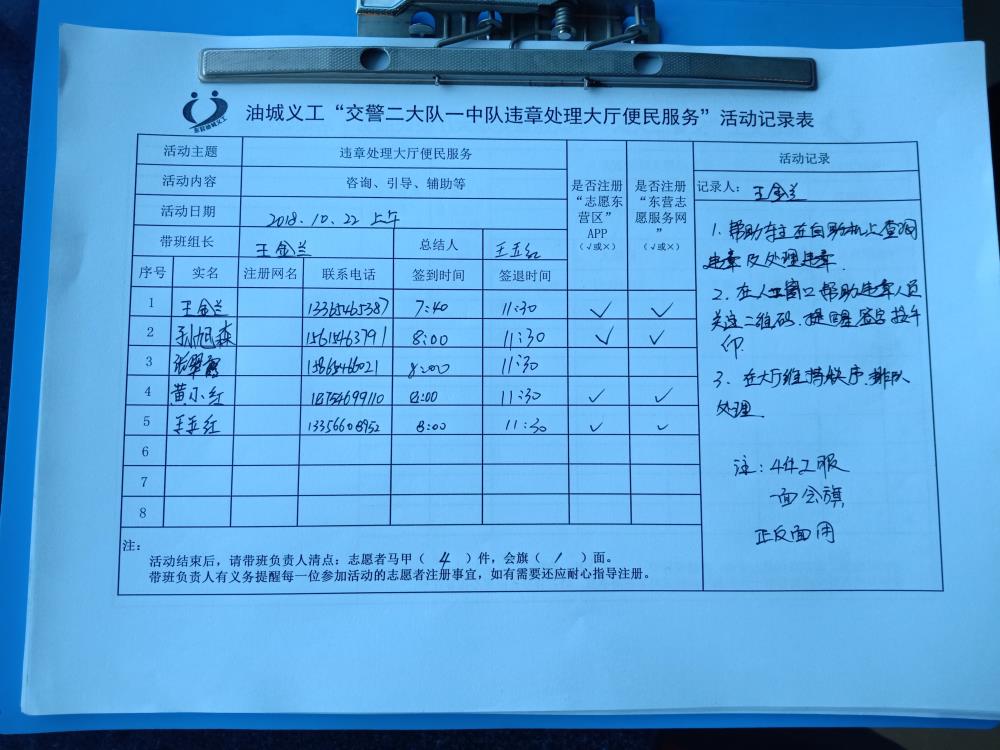 东营油城义工
油城义工“交警二大队一中队违章处理大厅便民服务”活动记录表
活动主题 违章处理大厅便民服务
活动内容 咨询、引导、辅助等
活动日期 2018.10.22 上午
带班组长 王金兰 总结人 王玉红
是否注册“志愿东营区”APP（√或×）
是否注册“东营志愿服务网”（√或×）
序号 实名 注册网名 联系电话 签到时间 签退时间
1 王金兰 13365465387 7:40 11:30 √ √
2 孙旭森 15615463791 8:00 11:30 √ √
3 8:00 11:30
4 黄小红 18754699110 8:00 11:30 √ √
5 王玉红 13356608952 8:00 11:30 √ √
6
7
8
注：
活动结束后，请带班负责人清点：志愿者马甲（ 4 ）件，会旗（ 1 ）面。
带班负责人有义务提醒每一位参加活动的志愿者注册事宜，如有需要还应耐心指导注册。
活动记录
记录人：王金兰
1. 帮助车主在自助机上查询
违章及处理违章.
2. 在人工窗口帮助违章人员
关注二维码.提醒签名按手
印.
3. 在大厅维持秩序.排队
处理.
注:4件工服
一面会旗
正反面用